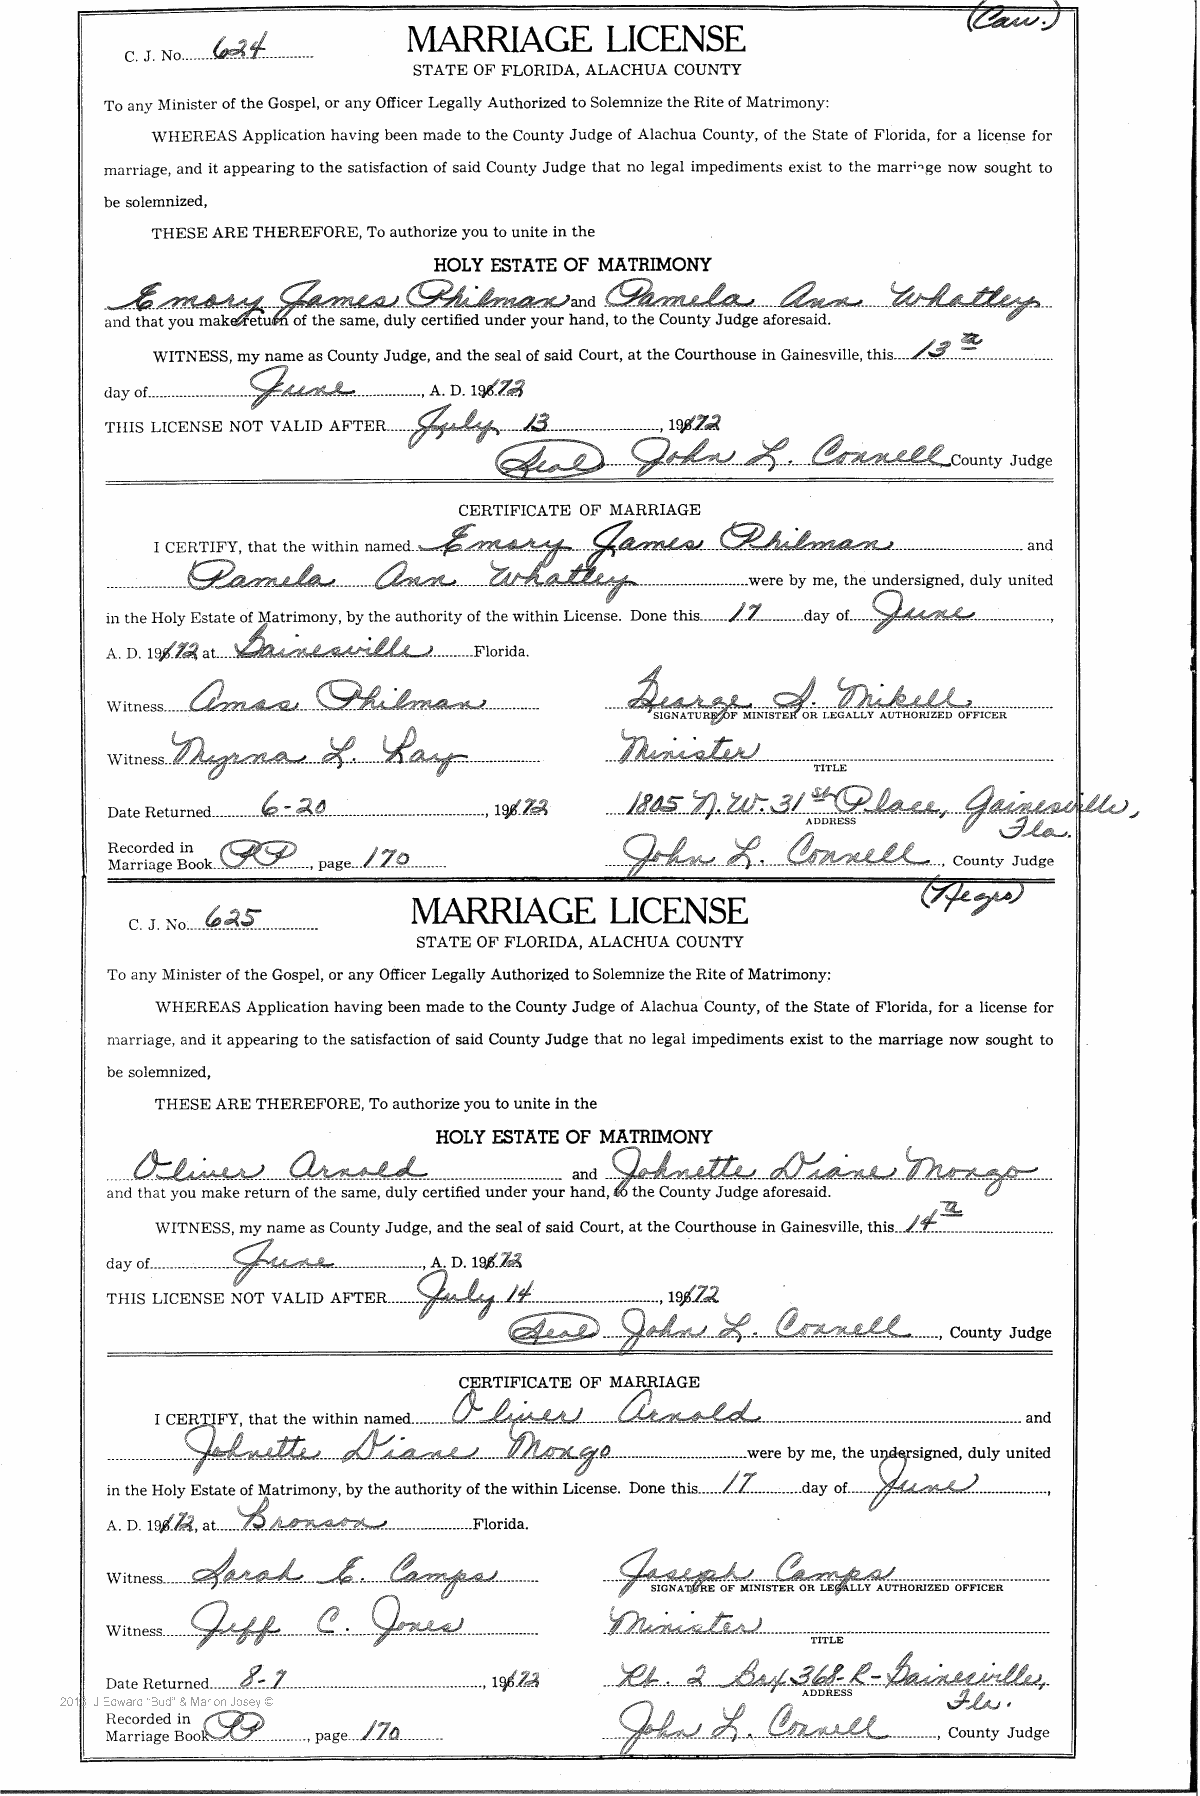 (Cau.)
C. J. No. 624
MARRIAGE LICENSE
STATE OF FLORIDA, ALACHUA COUNTY
To any Minister of the Gospel, or any Officer Legally Authorized to Solemnize the Rite of Matrimony:
WHEREAS Application having been made to the County Judge of Alachua County, of the State of Florida, for a license for
marriage, and it appearing to the satisfaction of said County Judge that no legal impediments exist to the marriage now sought to
be solemnized,
THESE ARE THEREFORE, To authorize you to unite in the
HOLY ESTATE OF MATRIMONY
Emory James Philman and Pamela Ann Whatley
and that you make return of the same, duly certified under your hand, to the County Judge aforesaid.
WITNESS, my name as County Judge, and the seal of said Court, at the Courthouse in Gainesville, this 13th
day of June, A. D. 1972
THIS LICENSE NOT VALID AFTER July 13, 1972
(Seal) John L. Connell County Judge
CERTIFICATE OF MARRIAGE
I CERTIFY, that the within named Emory James Philman and
Pamela Ann Whatley were by me, the undersigned, duly united
in the Holy Estate of Matrimony, by the authority of the within License. Done this 17 day of June,
A. D. 1972, at Gainesville Florida.
Witness Amos Philman George S. Mikell
SIGNATURE OF MINISTER OR LEGALLY AUTHORIZED OFFICER
Witness Myrna L. Ray Minister
TITLE
Date Returned 6-20, 1972 1805 N.W. 31st Place, Gainesville,
ADDRESS Fla.
Recorded in
Marriage Book PP, page 170 John L. Connell, County Judge
(Negro)
C. J. No. 625
MARRIAGE LICENSE
STATE OF FLORIDA, ALACHUA COUNTY
To any Minister of the Gospel, or any Officer Legally Authorized to Solemnize the Rite of Matrimony:
WHEREAS Application having been made to the County Judge of Alachua County, of the State of Florida, for a license for
marriage, and it appearing to the satisfaction of said County Judge that no legal impediments exist to the marriage now sought to
be solemnized,
THESE ARE THEREFORE, To authorize you to unite in the
HOLY ESTATE OF MATRIMONY
Oliver Arnold and Johnette Diane Mongo
and that you make return of the same, duly certified under your hand, to the County Judge aforesaid.
WITNESS, my name as County Judge, and the seal of said Court, at the Courthouse in Gainesville, this 14th
day of June, A. D. 1972
THIS LICENSE NOT VALID AFTER July 14, 1972
(Seal) John L. Connell, County Judge
CERTIFICATE OF MARRIAGE
I CERTIFY, that the within named Oliver Arnold and
Johnette Diane Mongo were by me, the undersigned, duly united
in the Holy Estate of Matrimony, by the authority of the within License. Done this 17 day of June,
A. D. 1972, at Bronson Florida.
Witness Sarah E. Camps Joseph Camps
SIGNATURE OF MINISTER OR LEGALLY AUTHORIZED OFFICER
Witness Jeff C. Jones Minister
TITLE
Date Returned 8-7, 1972 Rt. 2 Box 368-R-Gainesville,
ADDRESS Fla.
J Edward "Bud" & Marion Josey ©
Recorded in
Marriage Book PP, page 170 John L. Connell, County Judge